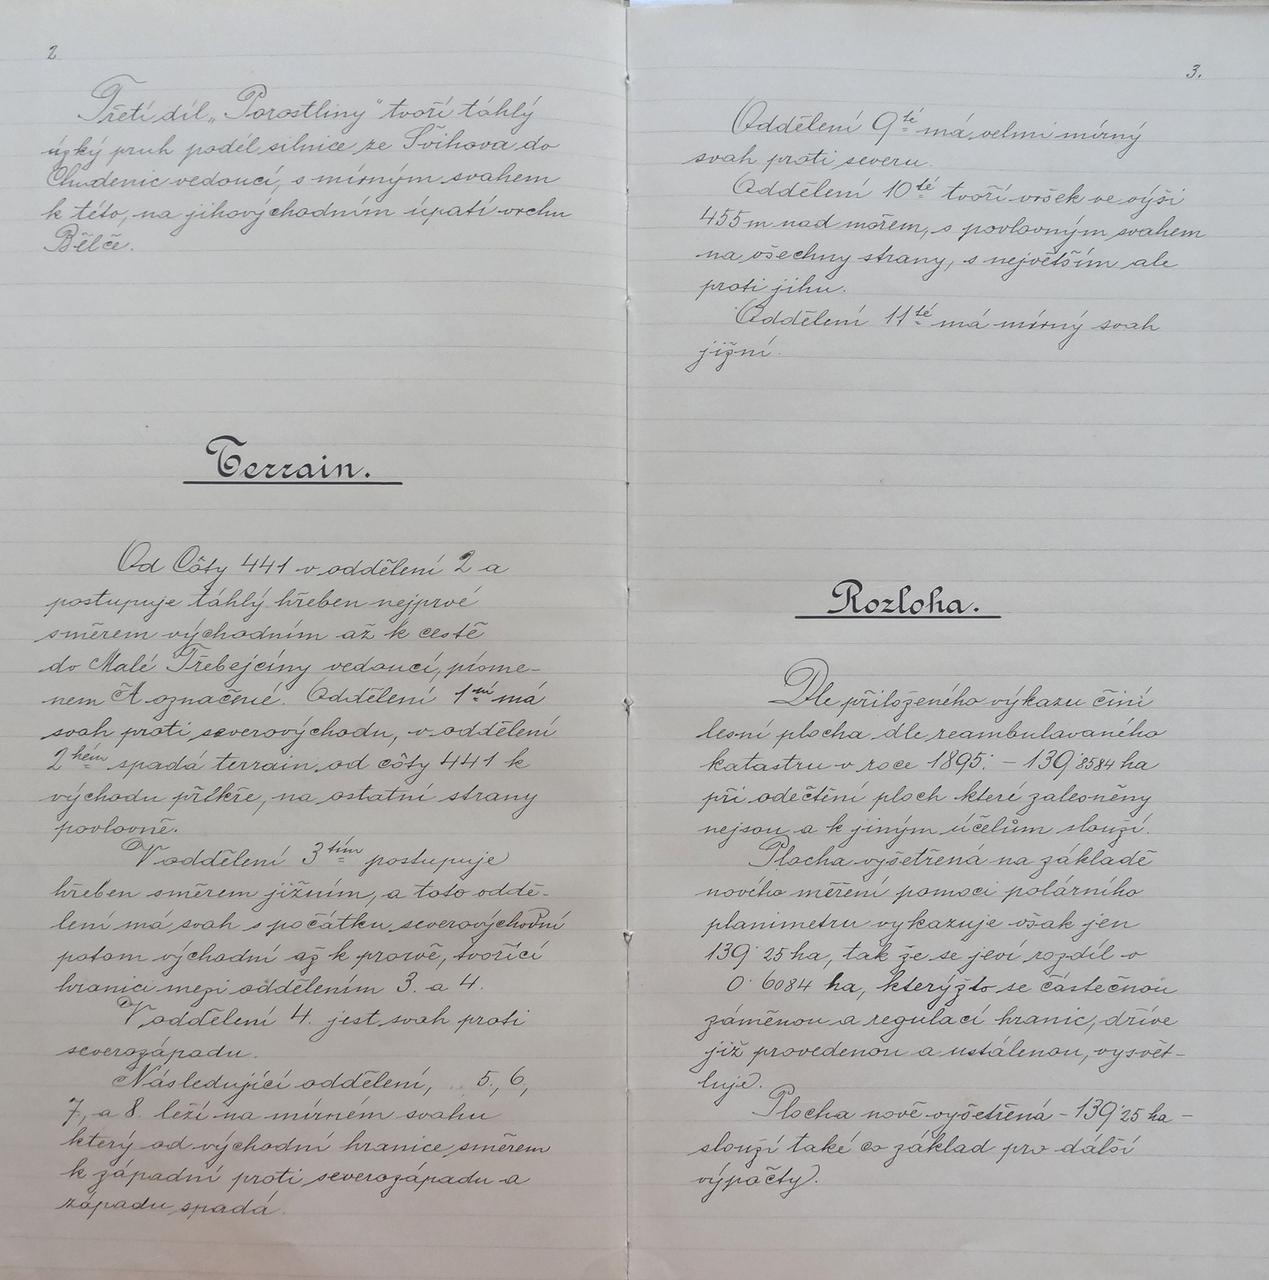 2
Třetí díl „Porostliny" tvoří táhlý
úzký pruh podél silnice ze Švihova do
Chudenic vedoucí, s mírným svahem
k této, na jihovýchodním úpatí vrchu
Bělče.
Terrain.
Od Côty 441 v oddělení 2 a
postupuje táhlý hřeben nejprvé
směrem východním až k cestě
do Malé Třebejčiny vedoucí, písme-
nem A označené. Oddělení 1ní má
svah proti severovýchodu, v oddělení
2hém spadá terrain od côty 441 k
východu příkře, na ostatní strany
povlovně.
V oddělení 3tím postupuje
hřeben směrem jižním, a toto oddě-
lení má svah s počátku severovýchodní
potom východní až k prorvě, tvořící
hranici mezi oddělením 3. a 4.
V oddělení 4. jest svah proti
severozápadu.
Následující oddělení, 5., 6,
7, a 8. leží na mírném svahu
který od východní hranice směrem
k západní proti severozápadu a
západu spadá.
3.
Oddělení 9té má velmi mírný
svah proti severu.
Oddělení 10té tvoří vršek ve výši
455 m nad mořem, s povlovným svahem
na všechny strany, s největším ale
proti jihu.
Oddělení 11té má mírný svah
jižní.
Rozloha.
Dle přiloženého výkazu činí
lesní plocha dle reambulovaného
katastru v roce 1895. – 139.8584 ha
při odečtění ploch které zalesněny
nejsou a k jiným účelům slouží.
Plocha vyšetřená na základě
nového měření pomocí polárního
planimetru vykazuje však jen
139.25 ha, tak že se jeví rozdíl v
0.6084 ha, kterýžto se částečnou
záměnou a regulací hranic, dříve
již provedenou a ustálenou, vysvět-
luje.
Plocha nově vyšetřená – 139.25 ha –
slouží také co základ pro další
výpočty.